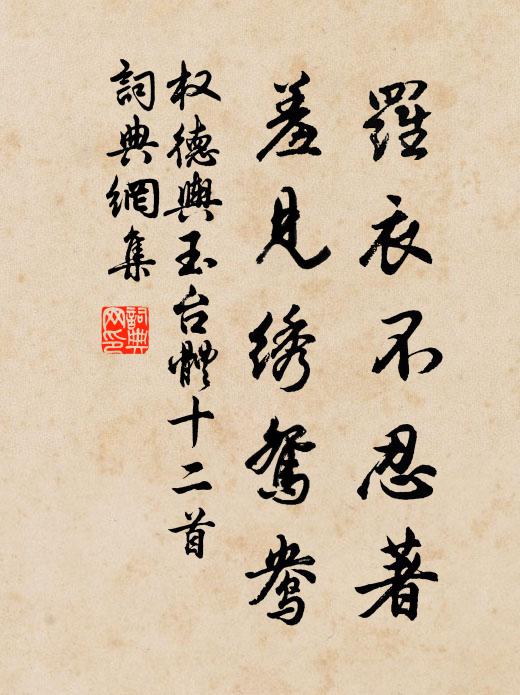 羅衣不忍著
羞見綉鴛鴦
权德輿玉台體十二首
詞典網集
詞典网印